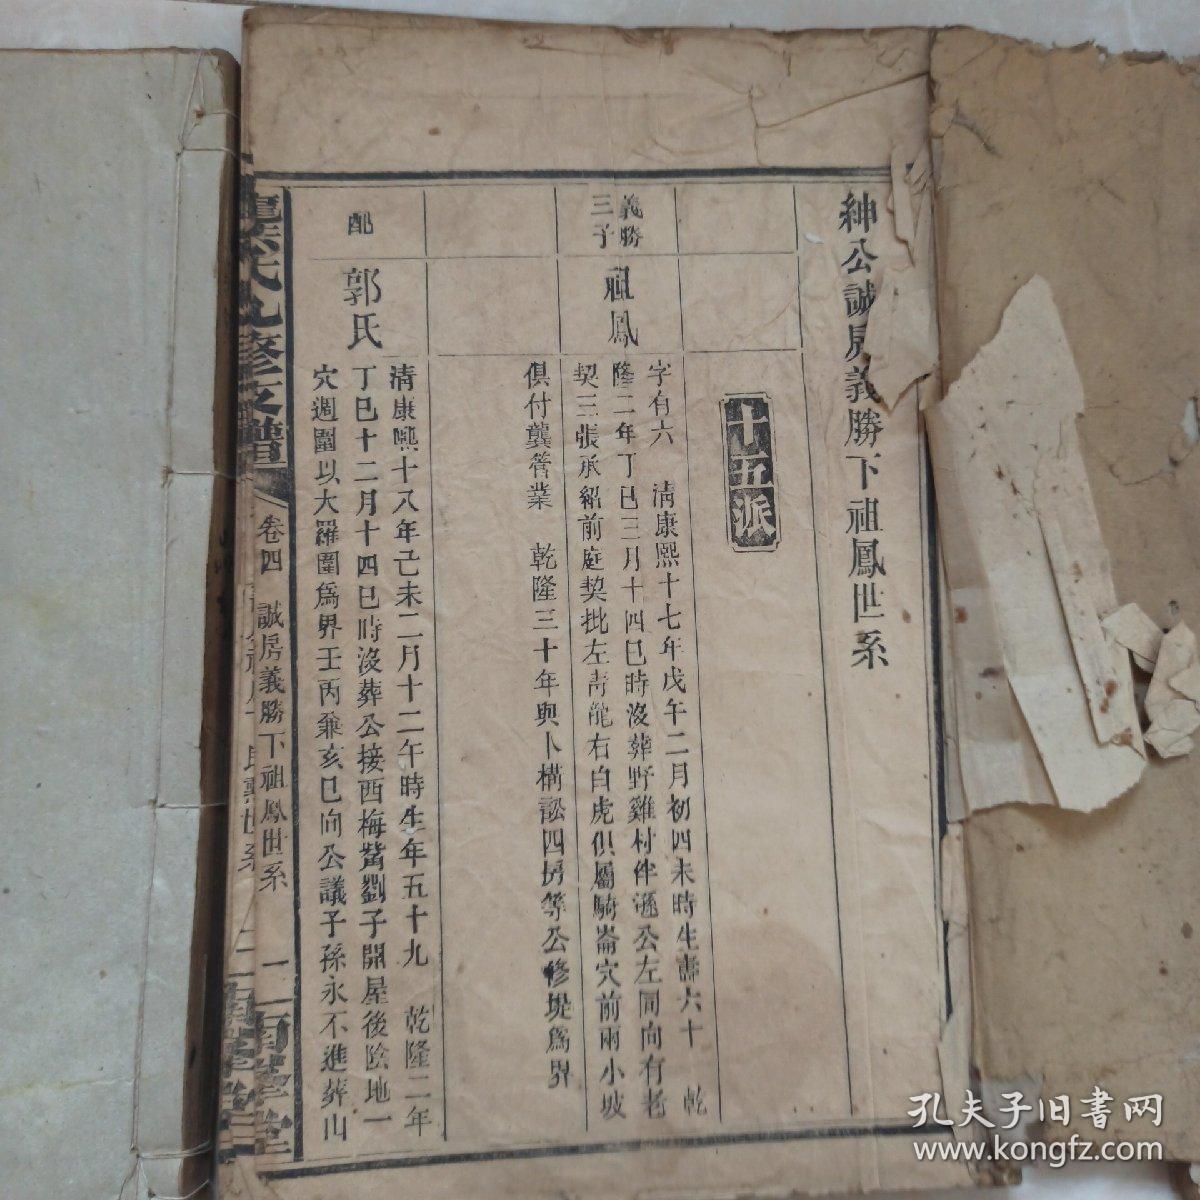 紳公誠房義勝下祖鳳世系
十五派
義勝
三子
祖鳳
字有六 清康熙十七年戊午二月初四未時生壽六十 乾
隆二年丁巳三月十四巳時沒葬野雞村伴遜公左同向有老
契三張承紹前庭契批左青龍右白虎俱屬騎崙穴前兩小坡
俱付龔管業 乾隆三十年與卜構訟四房等公修堤為界
配
郭氏
清康熙十八年己未二月十二午時生年五十九 乾隆二年
丁巳十二月十四巳時沒葬公接西梅觜劉子開屋後陰地一
穴週圍以大羅圍為界壬丙兼亥巳向公議子孫永不進葬山
氏九修支譜
卷四 誠房義勝下祖鳳世系 一
孔夫子旧书网
www.kongfz.com